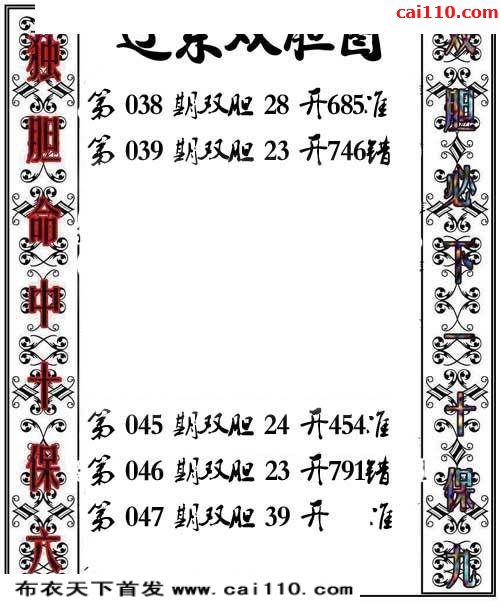 cai110.com
东双胆图
独胆命中十保六
第 038 期双胆 28 开685准
第 039 期双胆 23 开746错
第 045 期双胆 24 开454准
第 046 期双胆 23 开791错
第 047 期双胆 39 开 准
双胆必下一十保九
布衣天下首发 www.cai110.com